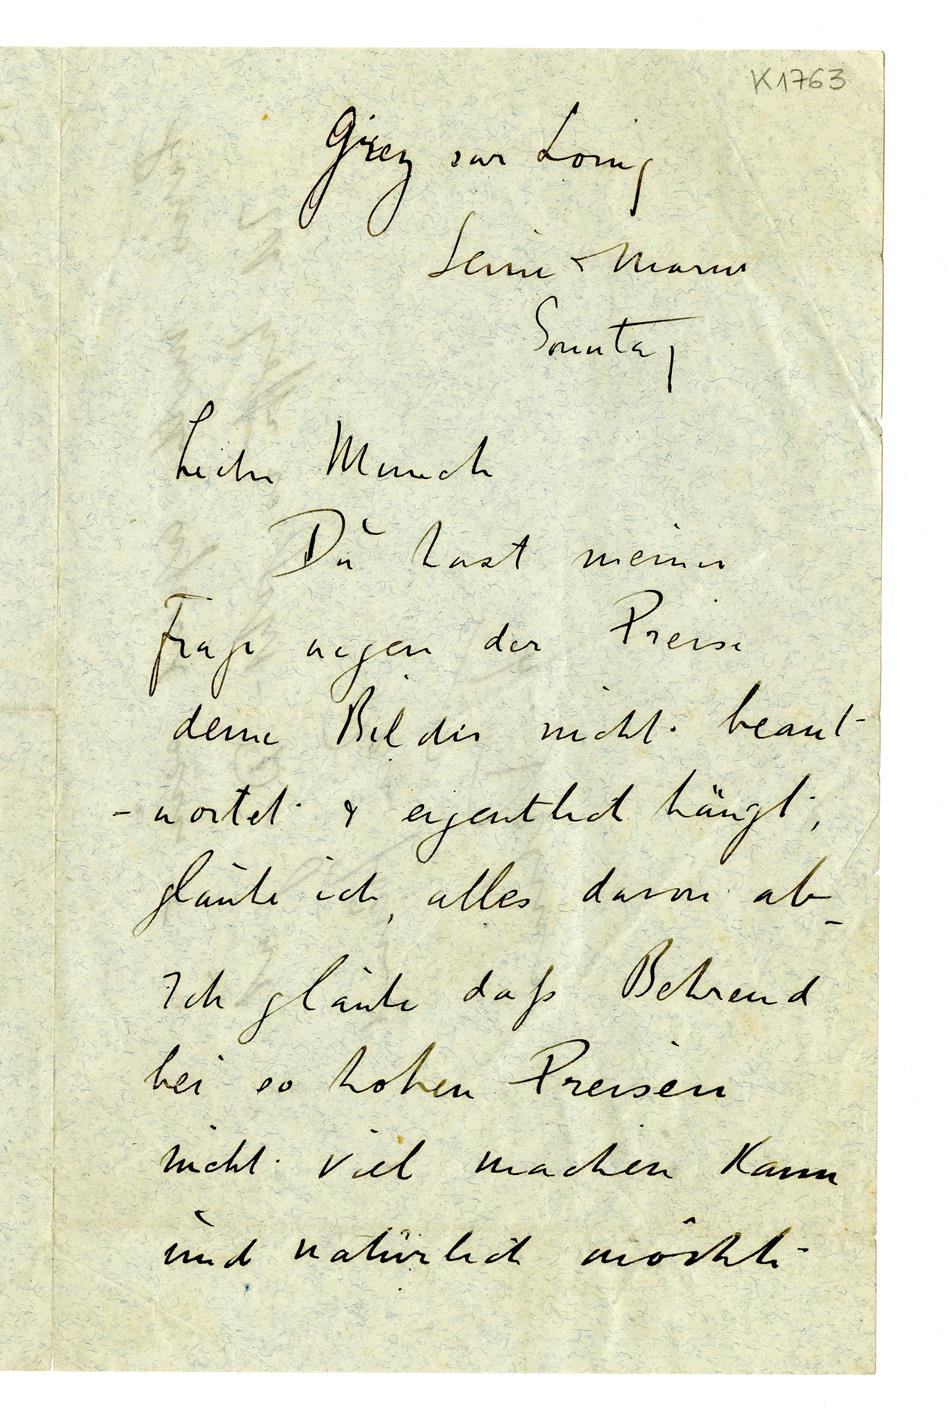 K1763
Grez sur Loing
Seine & Marne
Sonntag
Lieber Munch
Du hast meine
Frage wegen der Preise
deine Bilder nicht beant-
-wortet & eigentlich hängt,
glaube ich, alles davon ab–
Ich glaube daß Behrend
bei so hohen Preisen
nicht viel machen kann
und natürlich möchte